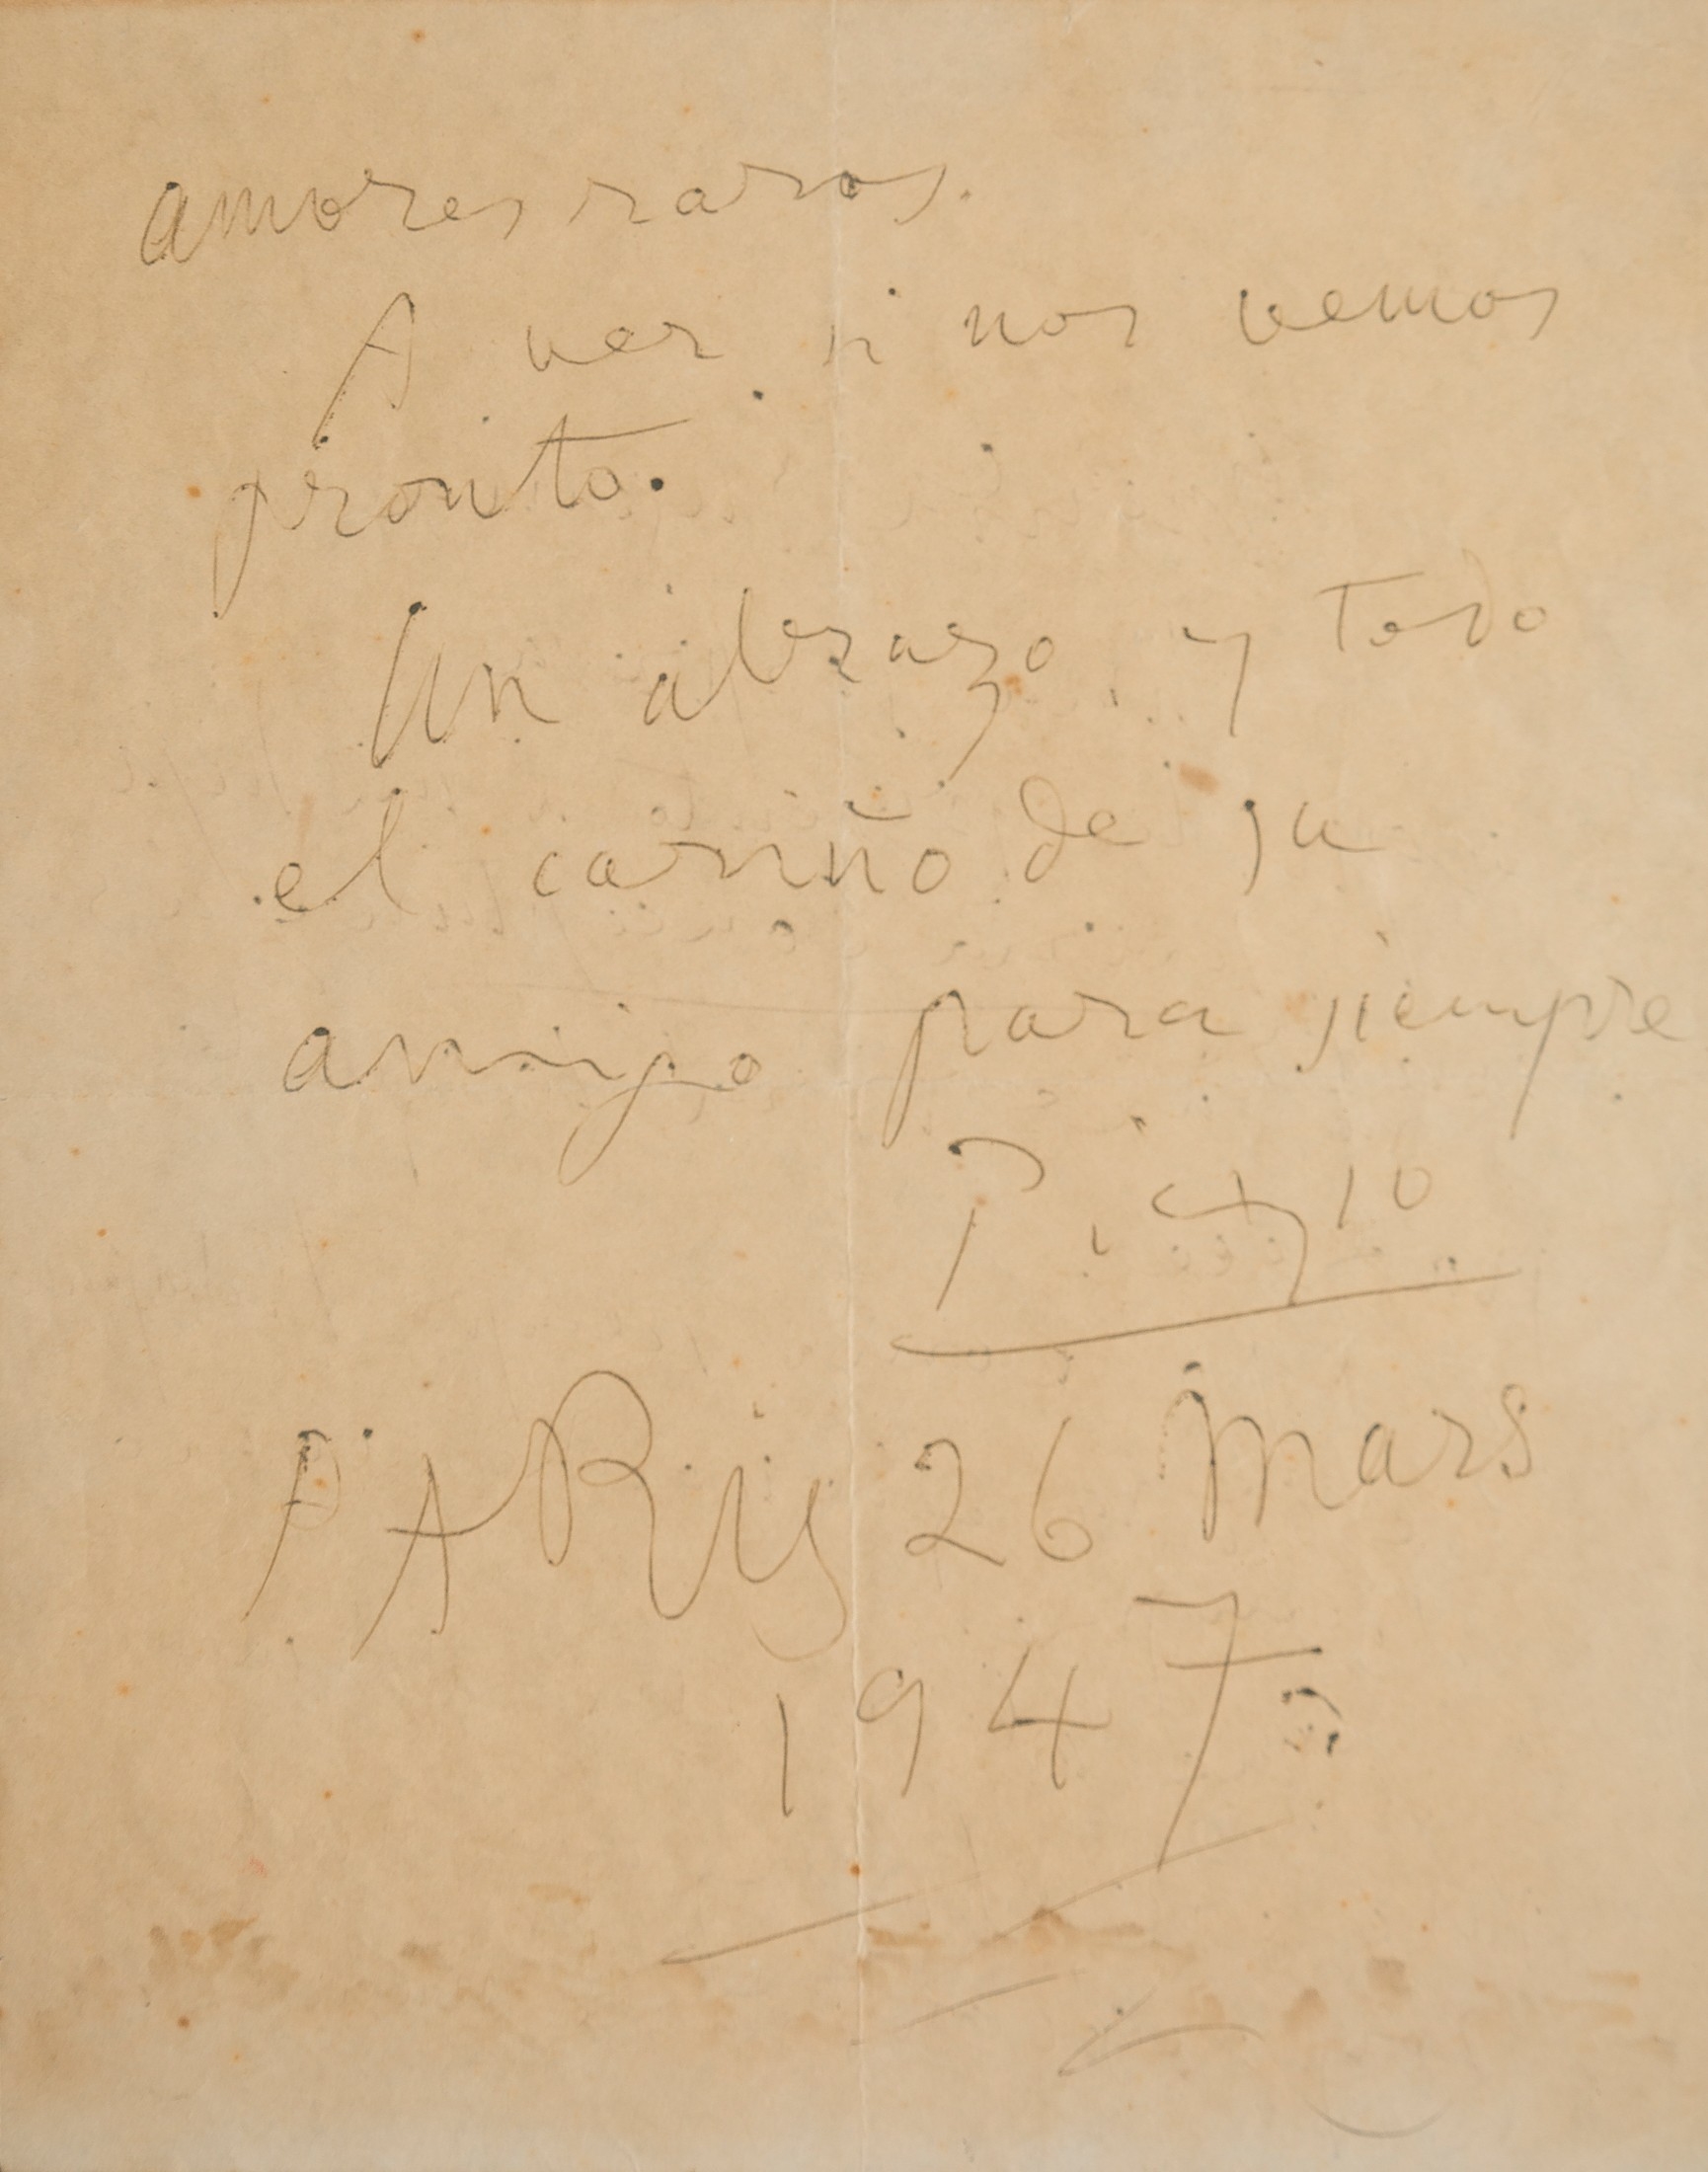 amores raros.
A ver si nos vemos
pronto.
Un abrazo y todo
el cariño de su
amigo para siempre
Picasso
PARis 26 Mars
1947